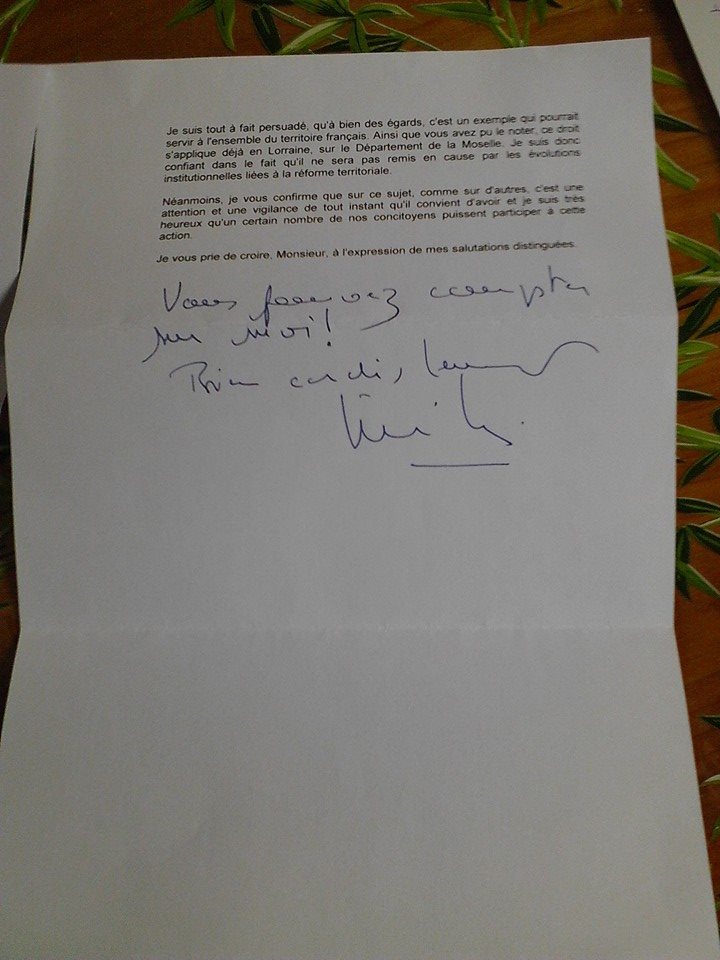 Je suis tout à fait persuadé, qu'à bien des égards, c'est un exemple qui pourrait
servir à l'ensemble du territoire français. Ainsi que vous avez pu le noter, ce droit
s'applique déjà en Lorraine, sur le Département de la Moselle. Je suis donc
confiant dans le fait qu'il ne sera pas remis en cause par les évolutions
institutionnelles liées à la réforme territoriale.
Néanmoins, je vous confirme que sur ce sujet, comme sur d'autres, c'est une
attention et une vigilance de tout instant qu'il convient d'avoir et je suis très
heureux qu'un certain nombre de nos concitoyens puissent participer à cette
action.
Je vous prie de croire, Monsieur, à l'expression de mes salutations distinguées.
Vous pouvez compter
sur moi!
Bien cordialement